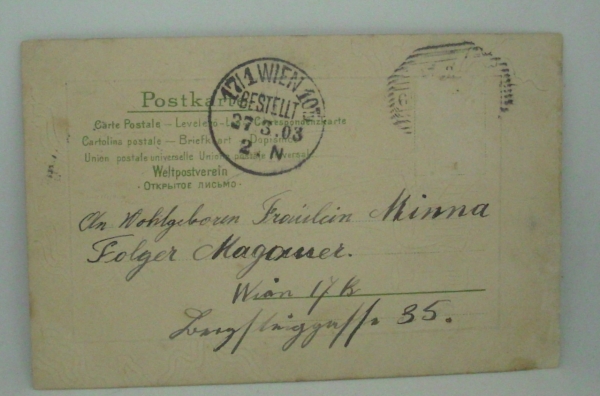 Postkarte
Carte Postale — Levelező-L Correspondenzkarte
Cartolina postale — Briefkaart — Dopisnice
Union postale universelle Union postale universelle
Weltpostverein
- ОТКРЫТОЕ ПИСЬМО -
17/1 WIEN 107
BESTELLT
27 3.03
2. N
An Wohlgeboren Fräulein Minna
Folger Magauer.
Wien 17 B
Bergsteiggasse 35.